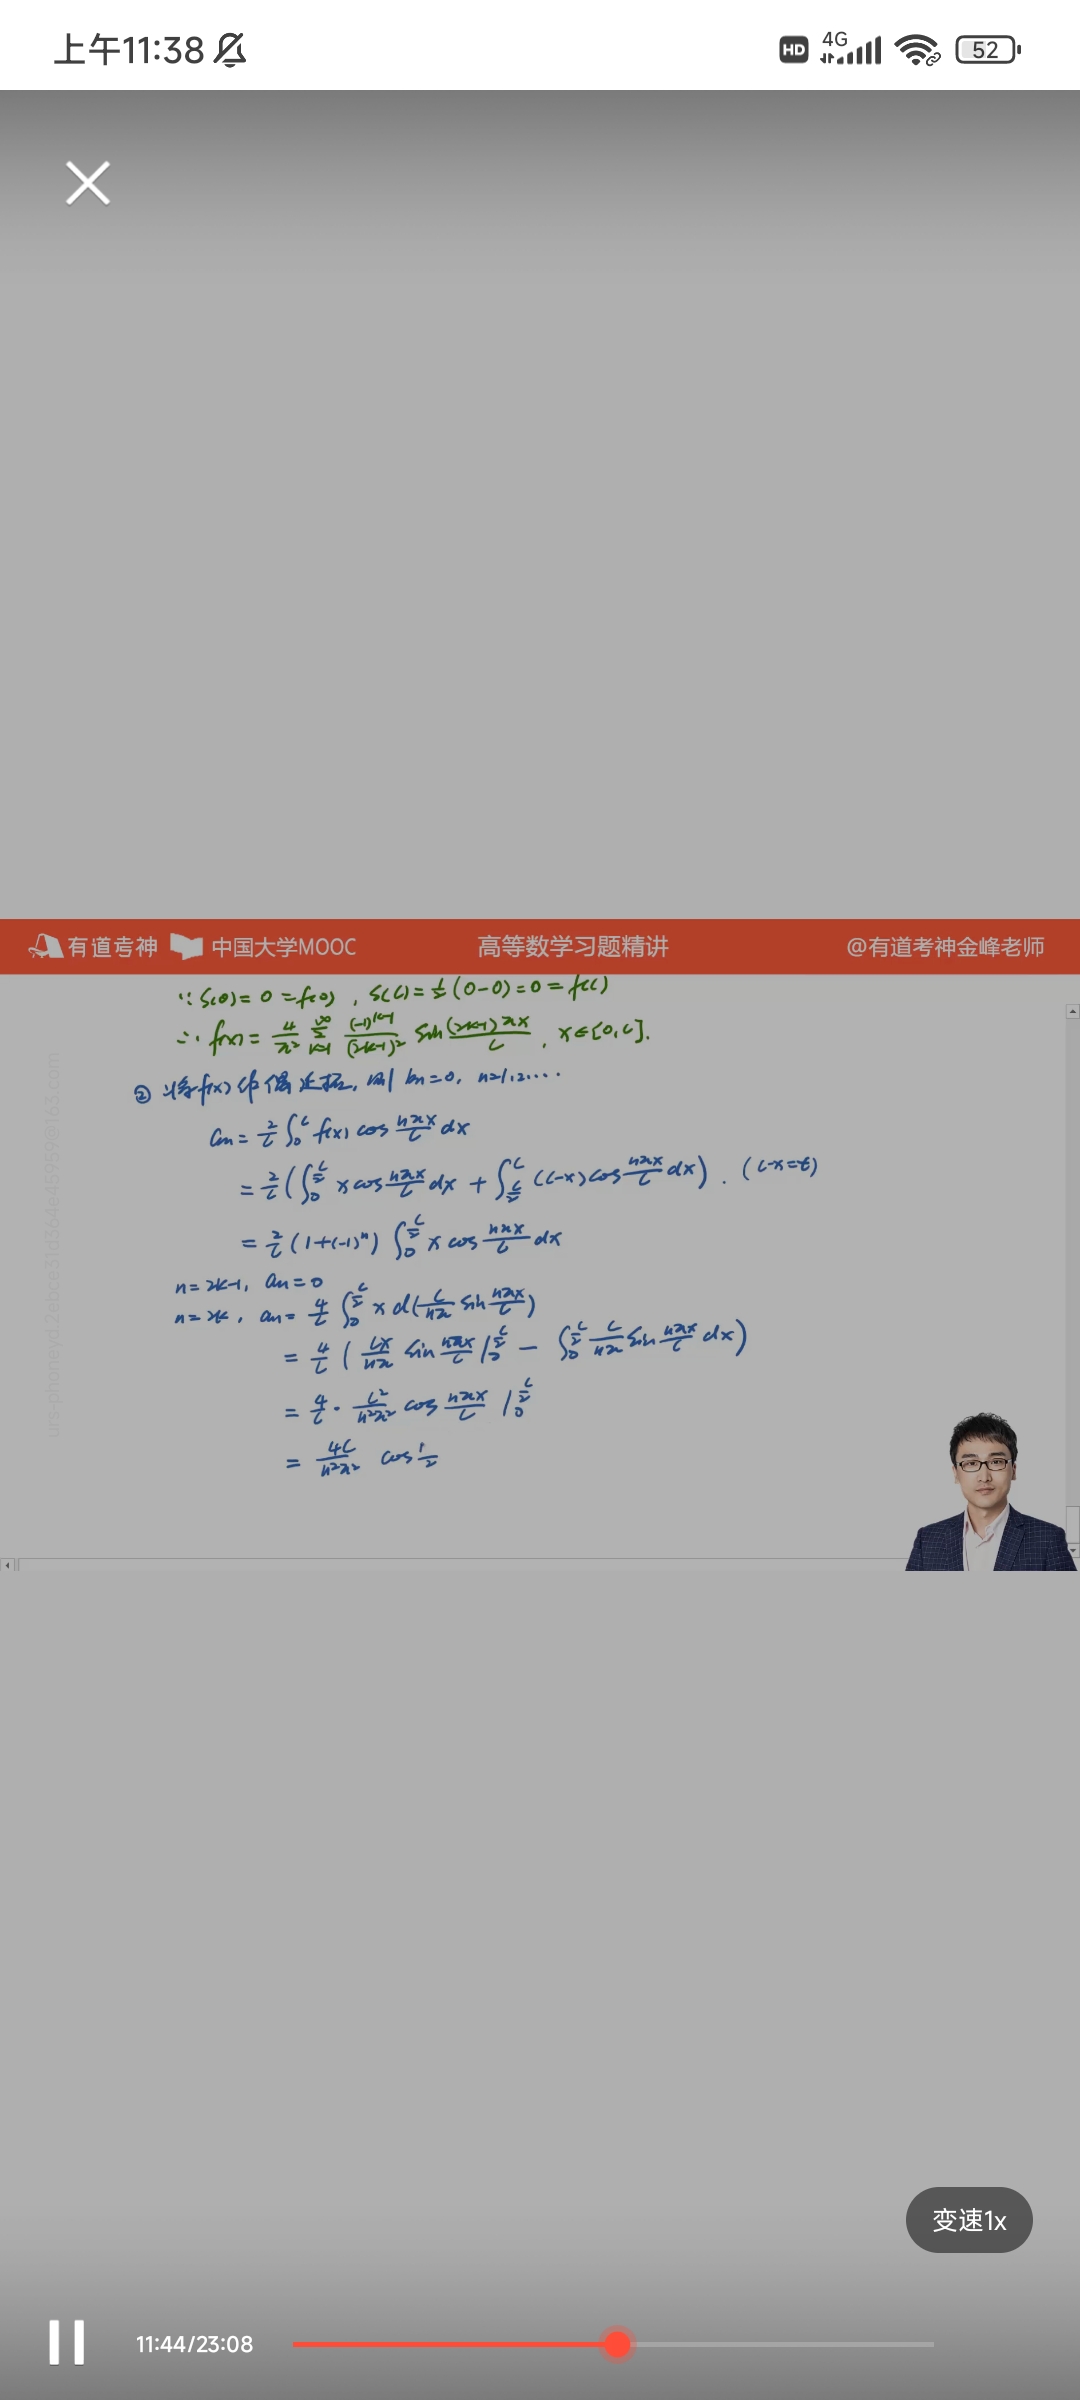 上午11:38 HD 4G 52
有道考神 中国大学MOOC 高等数学习题精讲 @有道考神金峰老师
∵ S(0) = 0 = f(0) , S(l) = ½ (0-0) = 0 = f(l)
∴ f(x) = 4l/π² ∑_{k=1}^{∞} (-1)^{k-1}/(2k-1)² sin (2k-1)πx/l , x∈[0, l].
② 将f(x)作偶延拓, 则 bn=0, n=1,2,…
an = 2/l ∫_0^l f(x) cos nπx/l dx
= 2/l ( ∫_0^{l/2} x cos nπx/l dx + ∫_{l/2}^l (l-x) cos nπx/l dx ) . (l-x=t)
= 2/l (1+(-1)^n) ∫_0^{l/2} x cos nπx/l dx
n=2k-1, an=0
n=2k, an = 4/l ∫_0^{l/2} x d( l/nπ sin nπx/l )
= 4/l ( lx/nπ sin nπx/l |_0^{l/2} - ∫_0^{l/2} l/nπ sin nπx/l dx )
= 4/l · l²/n²π² cos nπx/l |_0^{l/2}
= 4l/n²π² cos
变速1x
11:44/23:08